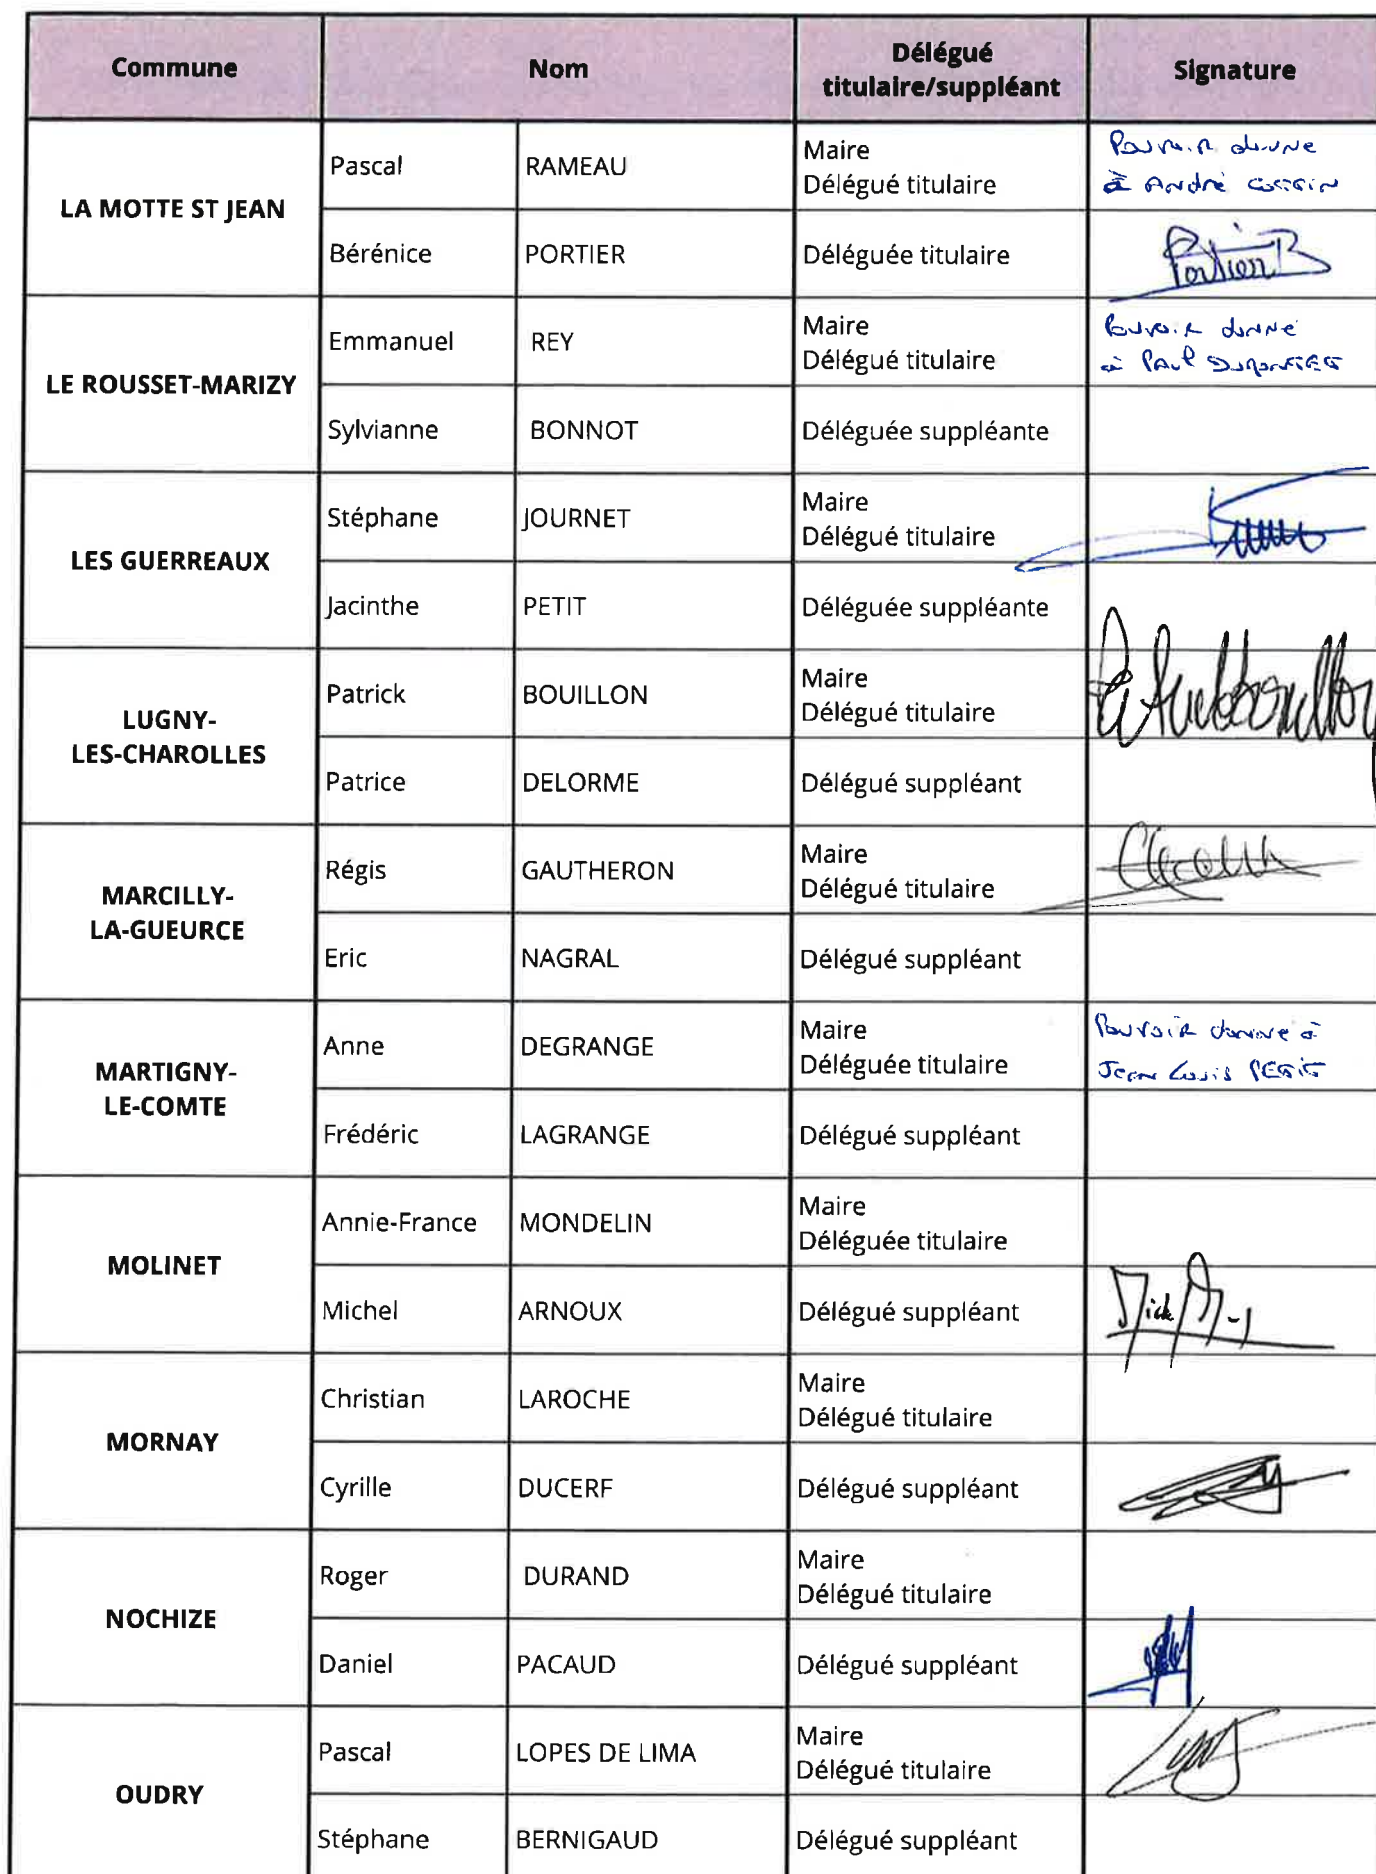 Commune Nom Délégué titulaire/suppléant Signature
LA MOTTE ST JEAN
Pascal RAMEAU Maire Délégué titulaire Pouvoir donné à André
Bérénice PORTIER Déléguée titulaire Portier B
LE ROUSSET-MARIZY
Emmanuel REY Maire Délégué titulaire Pouvoir donné à Paul
Sylvianne BONNOT Déléguée suppléante
LES GUERREAUX
Stéphane JOURNET Maire Délégué titulaire
Jacinthe PETIT Déléguée suppléante
LUGNY-
LES-CHAROLLES
Patrick BOUILLON Maire Délégué titulaire
Patrice DELORME Délégué suppléant
MARCILLY-
LA-GUEURCE
Régis GAUTHERON Maire Délégué titulaire
Eric NAGRAL Délégué suppléant
MARTIGNY-
LE-COMTE
Anne DEGRANGE Maire Déléguée titulaire Pouvoir donné à Jean Louis PETIT
Frédéric LAGRANGE Délégué suppléant
MOLINET
Annie-France MONDELIN Maire Déléguée titulaire
Michel ARNOUX Délégué suppléant
MORNAY
Christian LAROCHE Maire Délégué titulaire
Cyrille DUCERF Délégué suppléant
NOCHIZE
Roger DURAND Maire Délégué titulaire
Daniel PACAUD Délégué suppléant
OUDRY
Pascal LOPES DE LIMA Maire Délégué titulaire
Stéphane BERNIGAUD Délégué suppléant